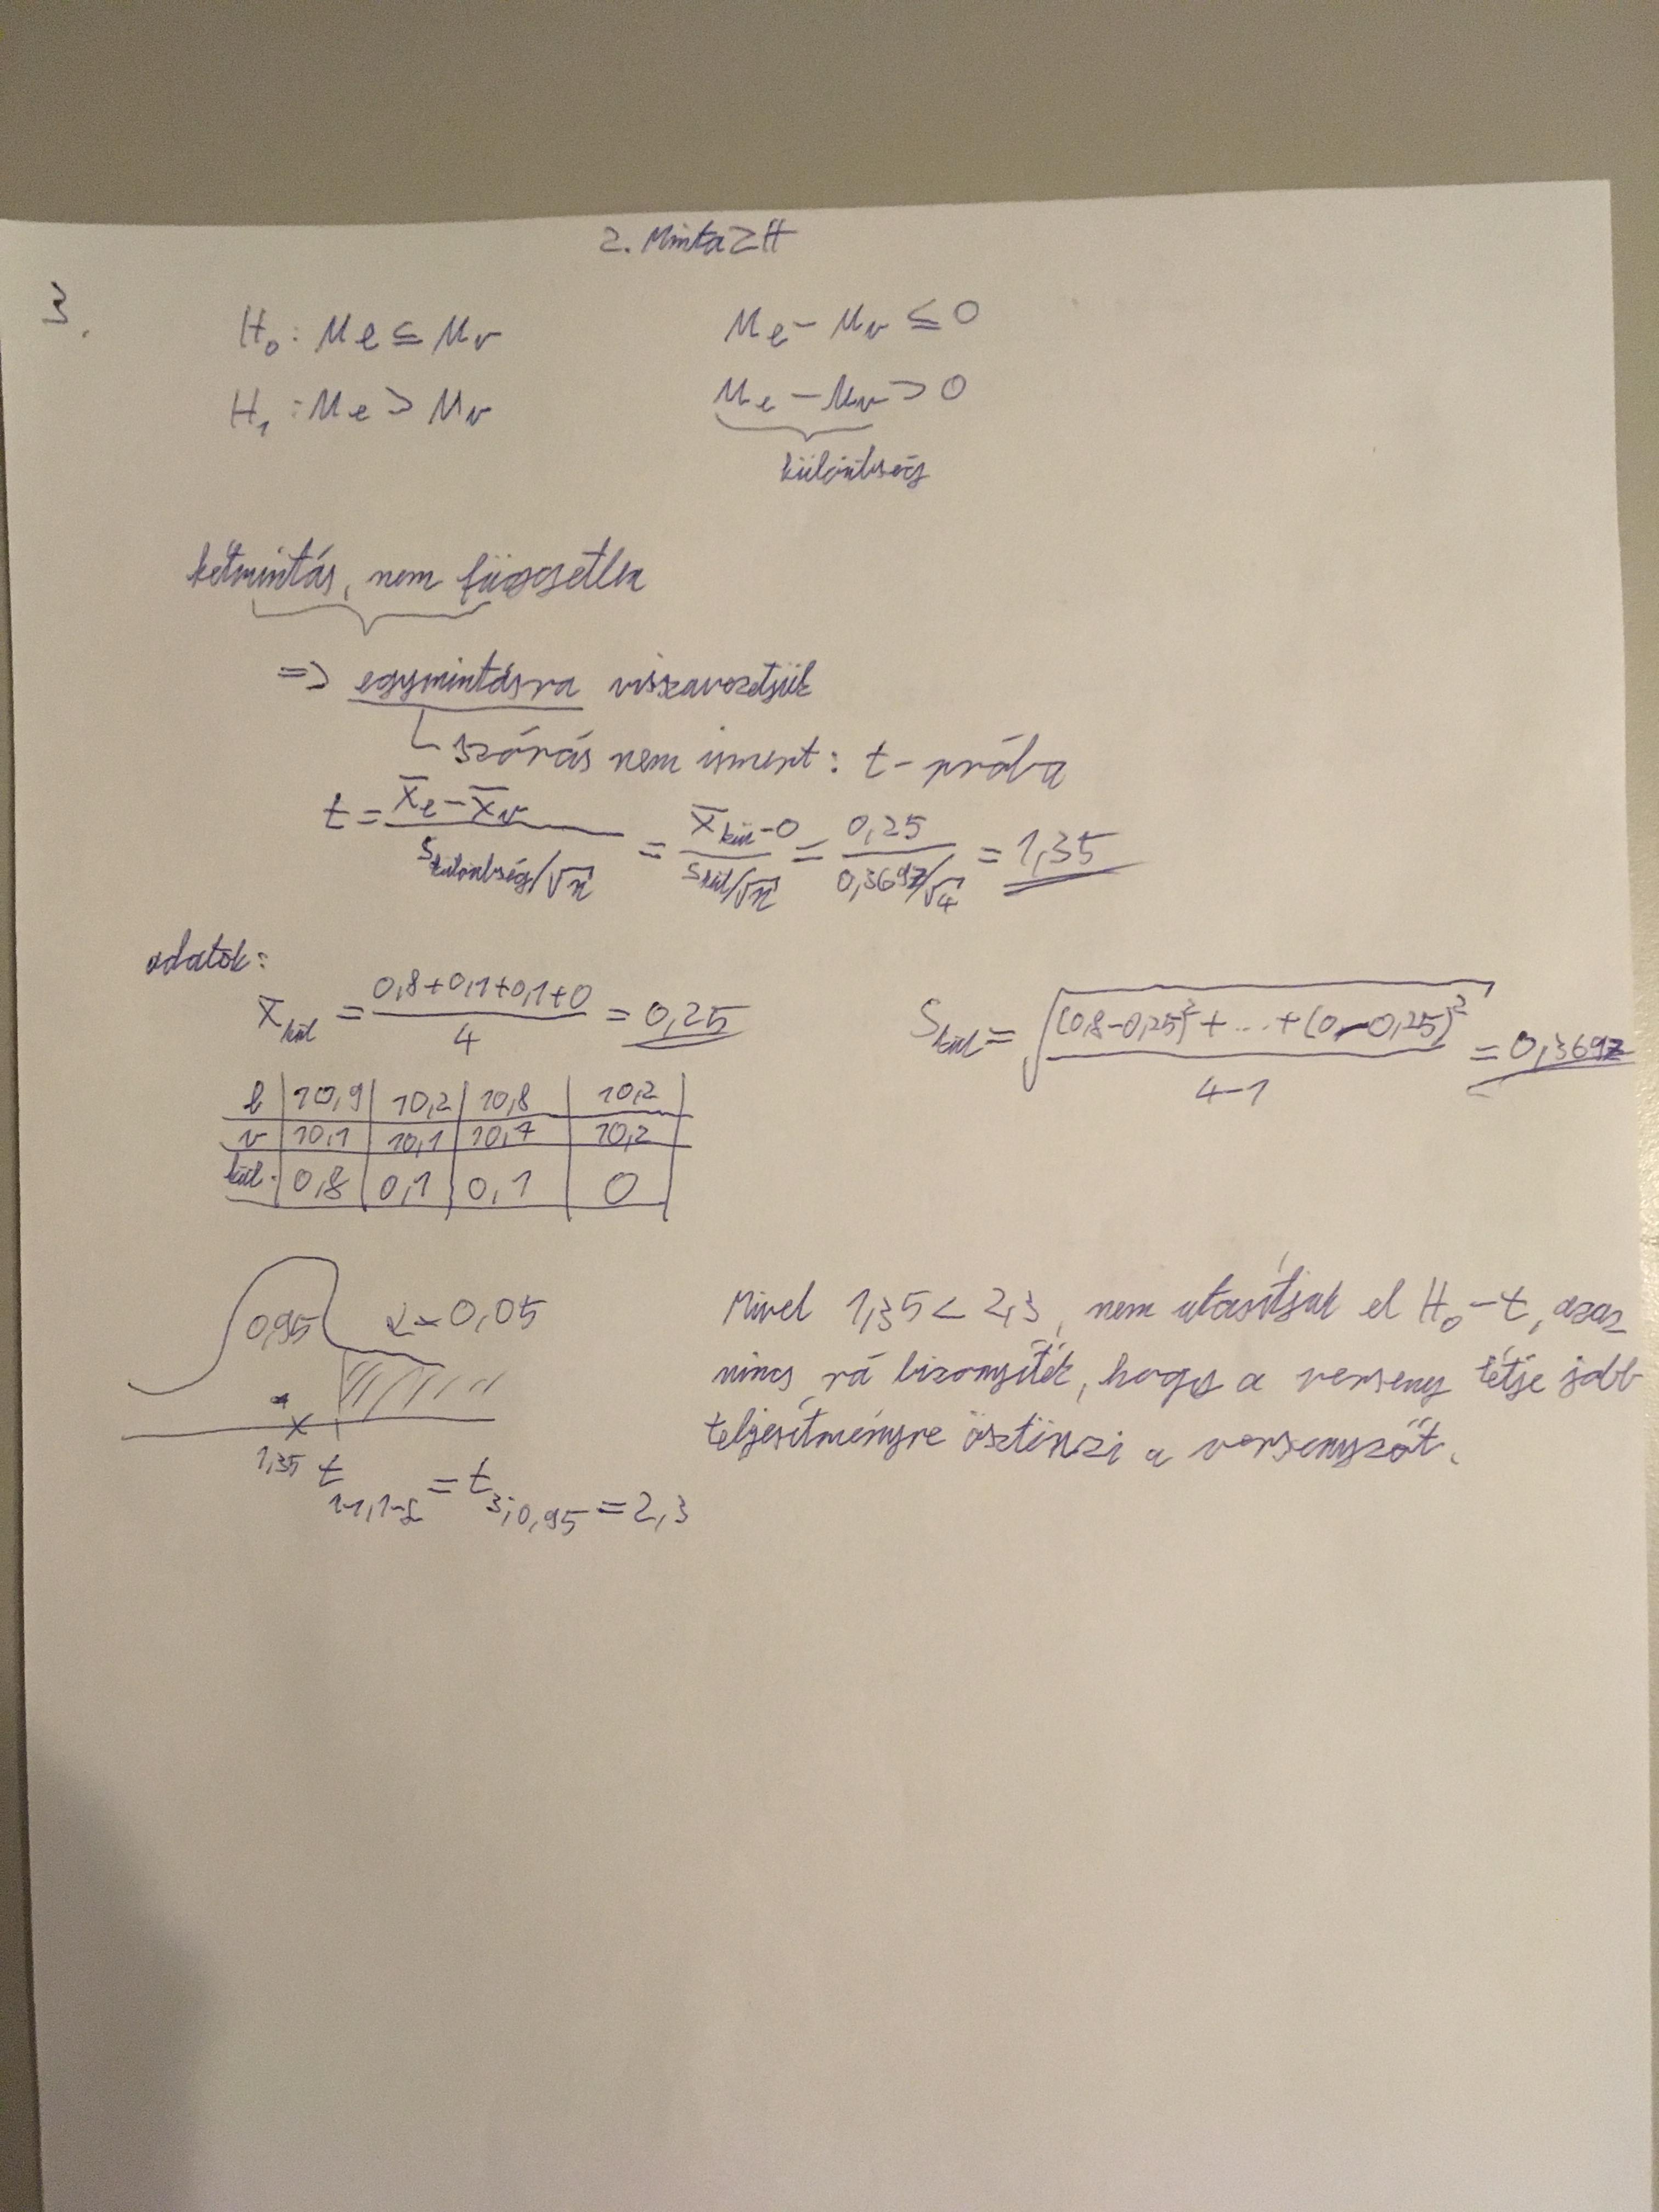 2. Minta ZH
3.
H₀: μₑ ≤ μᵥ    μₑ - μᵥ ≤ 0
H₁: μₑ > μᵥ    μₑ - μᵥ > 0
különbség
kétmintás, nem független
=> egymintásra visszavezetjük
szórás nem ismert: t-próba
t = (x̄ₑ - x̄ᵥ)/(s_különbség/√n) = (x̄_kül - 0)/(s_kül/√n) = 0,25/(0,3697/√4) = 1,35
adatok:
x̄_kül = (0,8+0,1+0,1+0)/4 = 0,25    S_kül = √(((0,8-0,25)² + ... + (0-0,25)²)/(4-1)) = 0,3697
e | 10,9 | 10,2 | 10,8 | 10,2
v | 10,1 | 10,1 | 10,7 | 10,2
kül. | 0,8 | 0,1 | 0,1 | 0
0,95    α=0,05
1,35    t_{n-1,1-α} = t_{3;0,95} = 2,3
Mivel 1,35 < 2,3, nem utasítjuk el H₀-t, azaz
nincs rá bizonyíték, hogy a verseny tétje jobb
teljesítményre ösztönzi a versenyzőt.